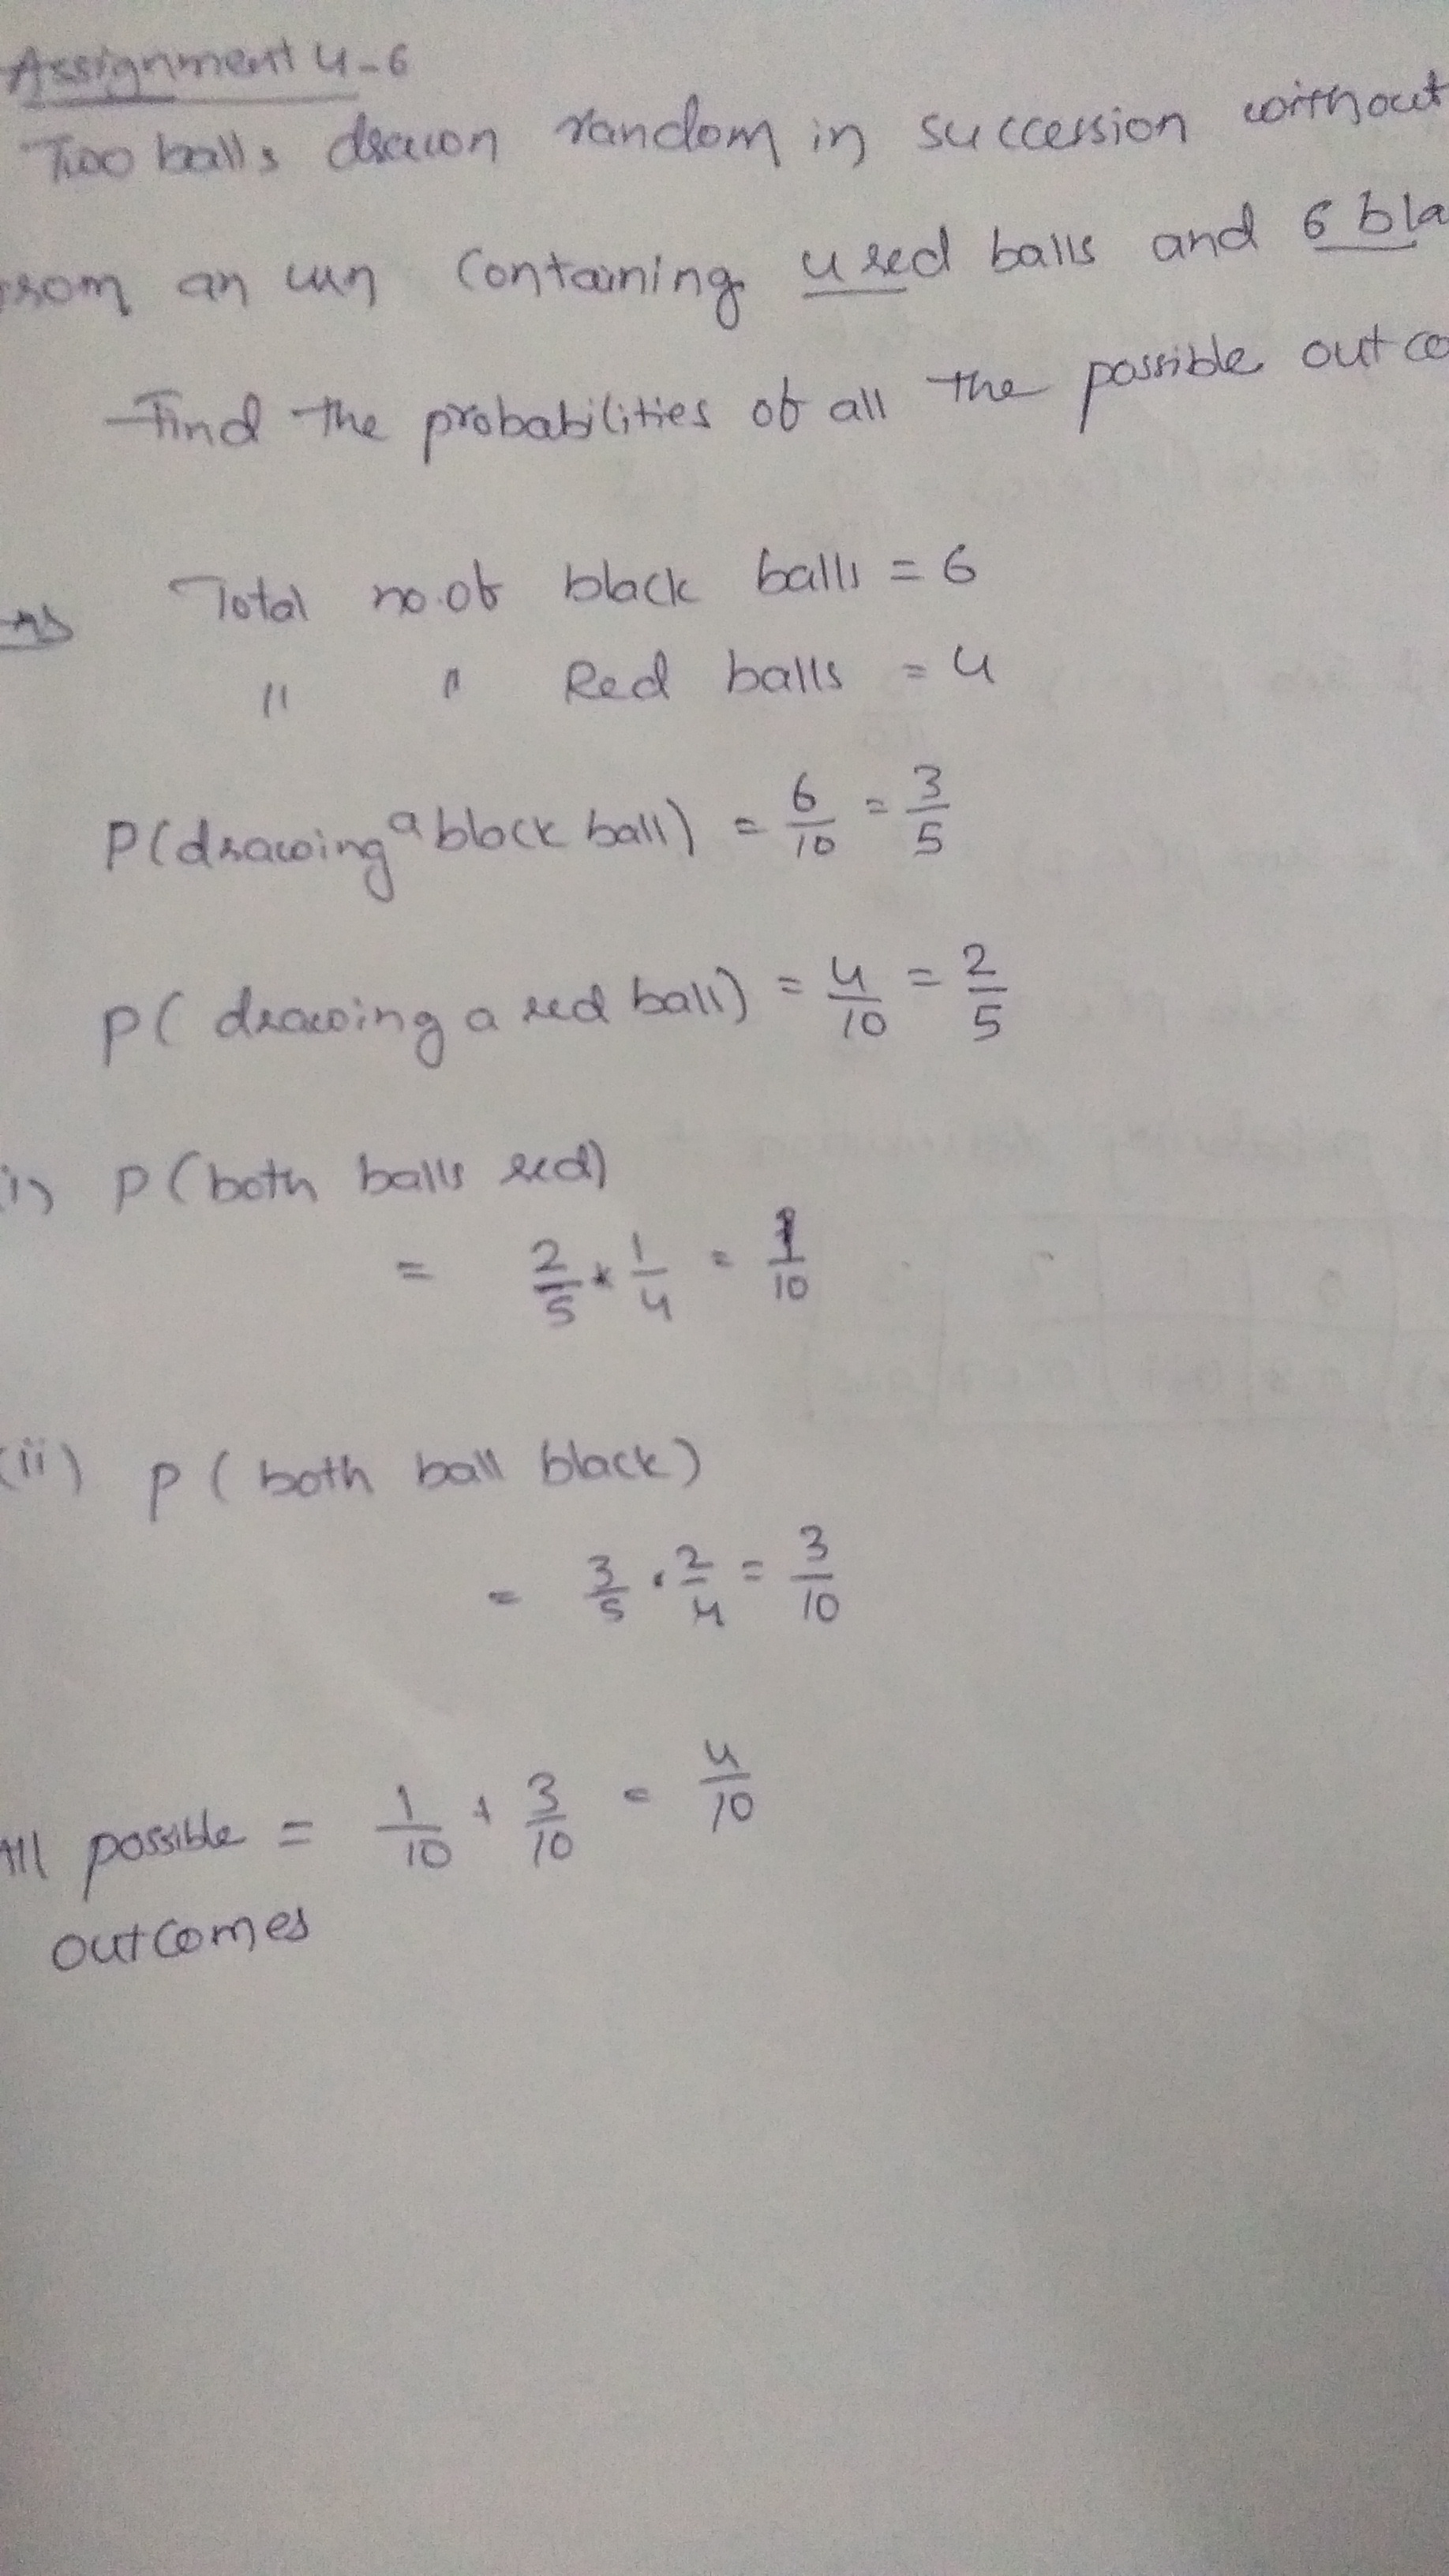 Assignment 4-6
Two balls drawn random in succession without
from an urn containing 4 red balls and 6 bla
Find the probabilities of all the possible outco
Total no.of black balls = 6
" " Red balls = 4
P(drawing a block ball) = 6/10 = 3/5
P( drawing a red ball) = 4/10 = 2/5
i) P(both balls red)
= 2/5 * 1/4 = 1/10
(ii) P( both ball black)
= 3/5 . 2/4 = 3/10
All possible = 1/10 + 3/10 = 4/10
outcomes